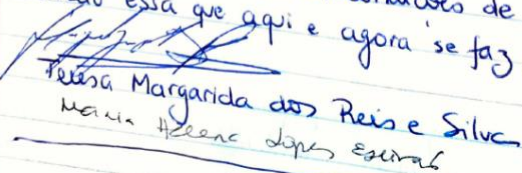 essa que aqui e agora se faz
Teresa Margarida dos Reis e Silva
Maria Helena Lopes